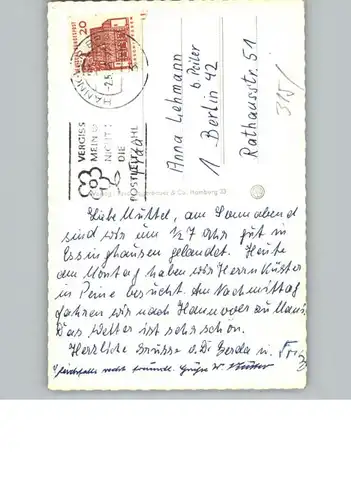 DEUTSCHE BUNDESPOST
20
HANNOVER
-2.5.
VERGISS
MEIN
NICHT
DIE
POSTLEITZAHL
Anna Lehmann
b Peiler
1 Berlin 42
Rathausstr. 51
315/
& Co., Hamburg 22
Liebe Muttel, am Sonnabend
sind wir um ½7 Uhr gut in
Essinghausen gelandet. Heute
am Montag haben wir Herrn Küster
in Peine besucht. Am Nachmittag
fahren wir nach Hannover zu Maus.
Das Wetter ist sehr schön.
Herzliche Grüsse v. Di Gerda u. Fritz
Gleichfalls recht freundl. Grüße